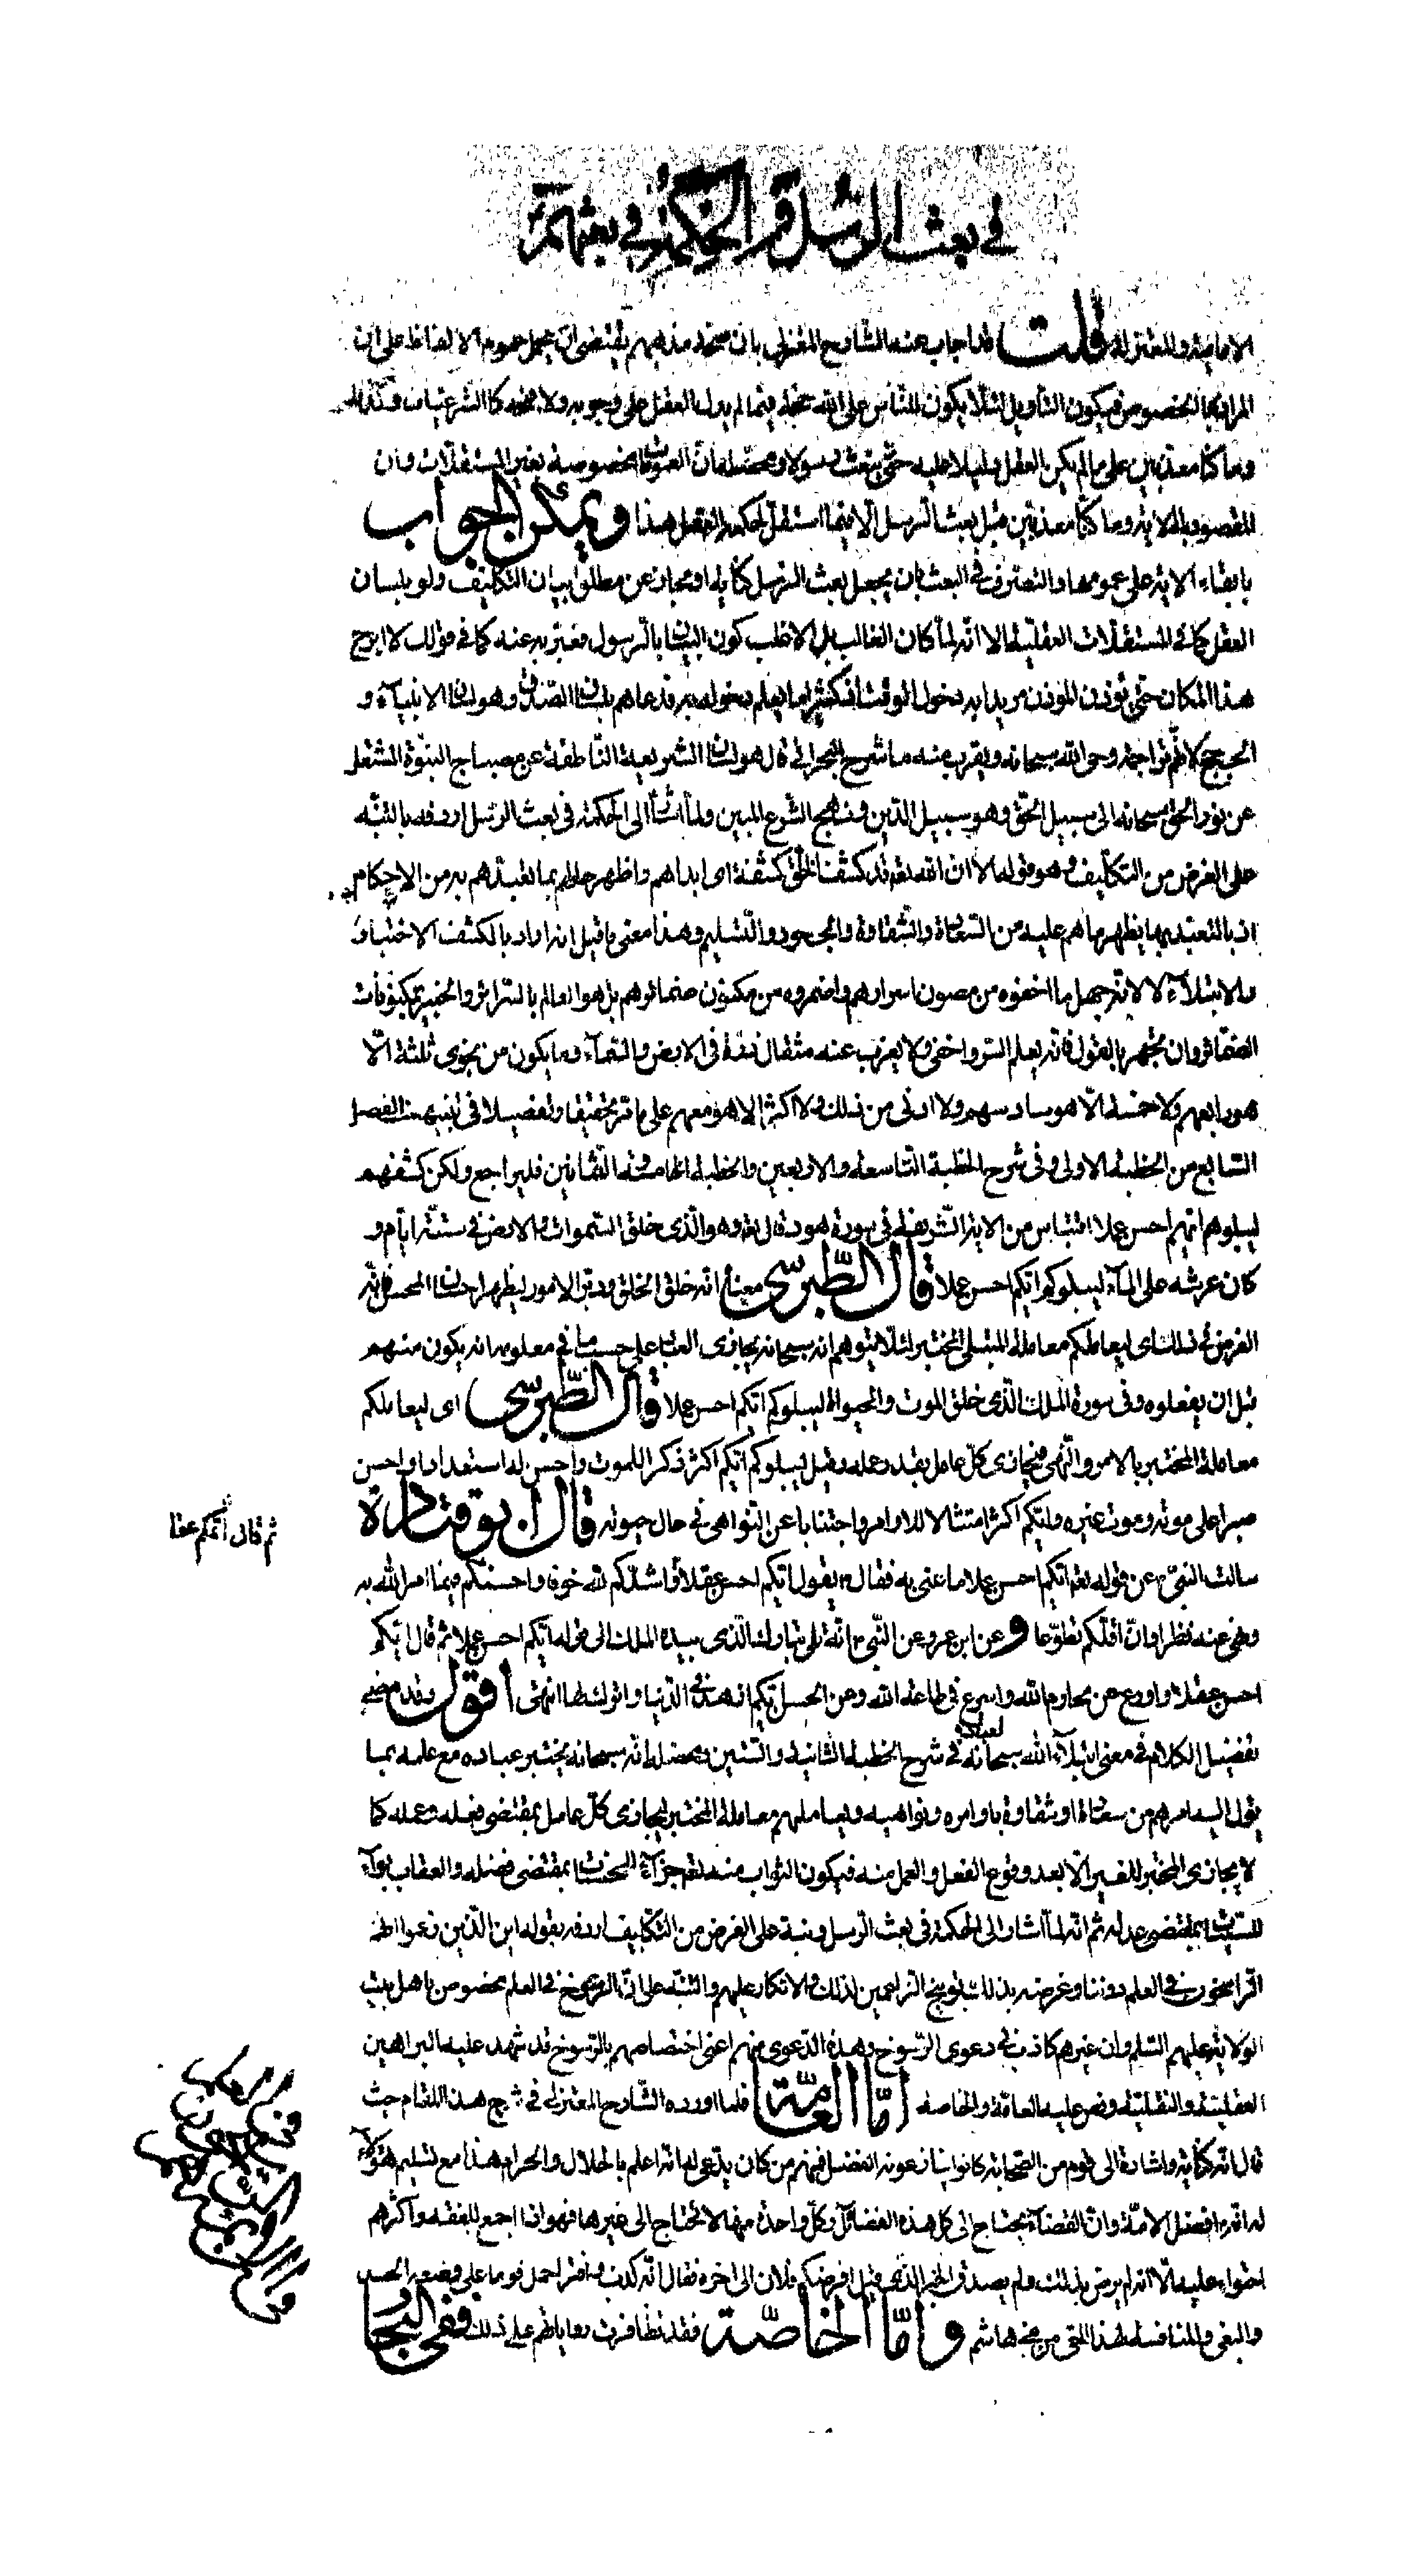 في بعث الرسل و الحكمة في بعثهم
الاماميّة والمعتزلة قلت قد اجاب عنه الشارح المعتزلي بان صحة مذهبهم تقتضى ان يحمل عموم الالفاظ على ان
المراد بها الخصوص فيكون التأويل لئلّا يكون للنّاس على الله حجّة فيما لم يدل العقل على وجوبه ولا قبحه كالشرعيات وكذلك
وما كنّا معذّبين على ما لم يكن العقل دليلا عليه حتّى نبعث رسولا ومحصّله انّ العمومات مخصوصة بغير المستقلّات وان
المقصود بالاية وما كنّا معذّبين قبل بعث الرسل الّا فيما استقلّ بحكمه العقل هذا ويمكن الجواب
بابقاء الاية على عمومها والتصرف في البعث بان يجعل بعث الرسل كناية او مجازا عن مطلق بيان التكليف ولو بلسان
العقل كما في المستقلّات العقليّة الا انّه لمّا كان الغالب بل الاغلب كون البيان بالرسول فعبّر به عنه كما في قولك لا ابرح
هذا المكان حتى يؤذن المؤذن مريدا به دخول الوقت اذ كثيرا ما يعلم دخوله به قد عاهم بلسان الصّدق وهو لسان الانبياء و
الحجج لانّهم تراجمة وحى الله سبحانه ويقرب منه ما شرح البحراني قال هو لسان الشريعة الناطقة عن مصباح النبوّة المشتعل
عن نور الحقّ سبحانه الى سبيل الحق وهو سبيل الدّين ومناهج الشرع المبين ولمّا اشار الى الحكمة في بعث الرسل اردفه بالتنبّه
على الغرض من التكليف وهو قوله الا ان الله تعالى قد كشف الخلق كشفة اى ابداهم واظهر حالهم بما تعبّدهم به من الاحكام
اذ بالتعبّد بها يظهر ما هم عليه من السعادة والشقاوة والجحود والتسليم وهذا معنى ما قيل انه اراد بالكشف الاختبار
والابتلاء لا لانّه جهل ما اخفوه من مصون اسرارهم واضمروه من مكنون ضمائرهم بل هو العالم بالسّرائر والخبير بمكنونات
الضمائر وان تجهر بالقول فانّه يعلم السّر واخفى ولا يعزب عنه مثقال ذرّة في الارض والسّماء وما يكون من نجوى ثلثة الّا
هو رابعهم ولا خمسة الّا هو سادسهم ولا ادنى من ذلك ولا اكثر الا هو معهم على ما مرّ تحقيقا وتفصيلا في تنبيه الفصل
السّابع من الخطبة الاولى وفى شرح الخطبة التّاسعة والاربعين والخطبة الخامسة والثّمانين فليراجع ولكن كشفهم
ليبلوهم ايّهم احسن عملا اقتباس من الاية الشّريفة في سورة هود قال تعالى وهو الّذى خلق السّموات والارض في ستّة ايّام و
كان عرشه على الماء ليبلوكم ايّكم احسن عملا قال الطّبرسى معناه انّه خلق الخلق ودبّر الامور ليظهر احسان المحسن فانّه
الغرض في ذلك اى ليعاملكم معاملة المبتلى المختبر لئلّا يتوهم انه سبحانه يجازى العباد على حسب ما في معلومه انه يكون منهم
قبل ان يفعلوه وفى سورة الملك الّذى خلق الموت والحيوة ليبلوكم ايّكم احسن عملا قال الطّبرسى اى ليعاملكم
معاملة المختبر بالامر والنّهى فيجازى كلّ عامل بقدر عمله وقيل ليبلوكم ايّكم اكثر ذكرا للموت واحسن له استعدادا واحسن
صبرا على موته وموت غيره وايّكم اكثر امتثالا للاوامر واجتنابا عن النواهى في حال حيوته قال ابو قتادة
سالت النبىّ عن قوله تعالى ايّكم احسن عملا ما عنى به فقال يقول ايّكم احسن عقلا واشدّكم لله خوفا واحسنكم فيما امر الله به
ونهى عنه نظرا وان اقلّكم تطوّعا و عن ابن عمر عن النّبىّ انّه تلى تبارك الّذى بيده الملك الى قوله ايّكم احسن عملا ثم قال ايّكم
احسن عقلا واورع عن محارم الله واسرع في طاعة الله وعن الحسن ايّكم ازهد في الدّنيا واترك لها انتهى أقول وقد مضى
تفصيل الكلام في معنى ابتلاء الله سبحانه لعباده في شرح الخطبة الثانية والستّين ومحصّله انّه سبحانه يختبر عباده مع علمه بما
يؤل اليه امرهم من سعادة او شقاوة باوامره ونواهيه ويعاملهم معاملة المختبر ليجازى كلّ عامل بمقتضى فعله وعمله كما
لا يجازى المختبر للغير الّا بعد وقوع الفعل والعمل منه فيكون الثواب منه تعالى جزاء للحسنات بمقتضى فضله والعقاب بواء
للسيّئات بمقتضى عدله ثم انّه لمّا اشار الى الحكمة في بعث الرّسل ونبّه على الغرض من التكليف اردفه بقوله اين الّذين زعموا انّهم
الرّاسخون في العلم دوننا وغرضه بذلك توبيخ الزاعمين لذلك والانكار عليهم والتنبّه على انّ الرسوخ في العلم مخصوص باهل بيت
الولاية عليهم السّلم وان غيرهم كاذب في دعوى الرّسوخ وهذه الدّعوى منهم اعنى اختصاصهم بالرّسوخ قد شهد عليه البراهين
العقليّة والنقليّة ونصّ عليه العامّة والخاصه امّا العامّة فلما اورده الشّارح المعتزلى في شرح هذا المقام حيث
قال انّه كناية واشارة الى قوم من الصّحابة كانوا ينازعونه الفضل فمنهم من كان يدّعى له انّه اعلم بالحلال والحرام هذا مع تسليم هؤلاء
له انّه افضل الامّة وان القضاء يحتاج الى كلّ هذه الفضائل وكلّ واحدة منها لا تحتاج الى غيرها فهو اذا اجمع للفقه واكثرهم
احتواء عليه الّا انّه لم يرض بذلك ولم يصدق الخبر الذى قيل افرضكم فلان الى اخره فقال انّه كذب وافتراء حمل قوما على وضعه الحسد
والبغى والمنافسة لهذا الحىّ من بنى هاشم وامّا الخاصّة فقد تظافرت رواياتهم على ذلك ففى البحار